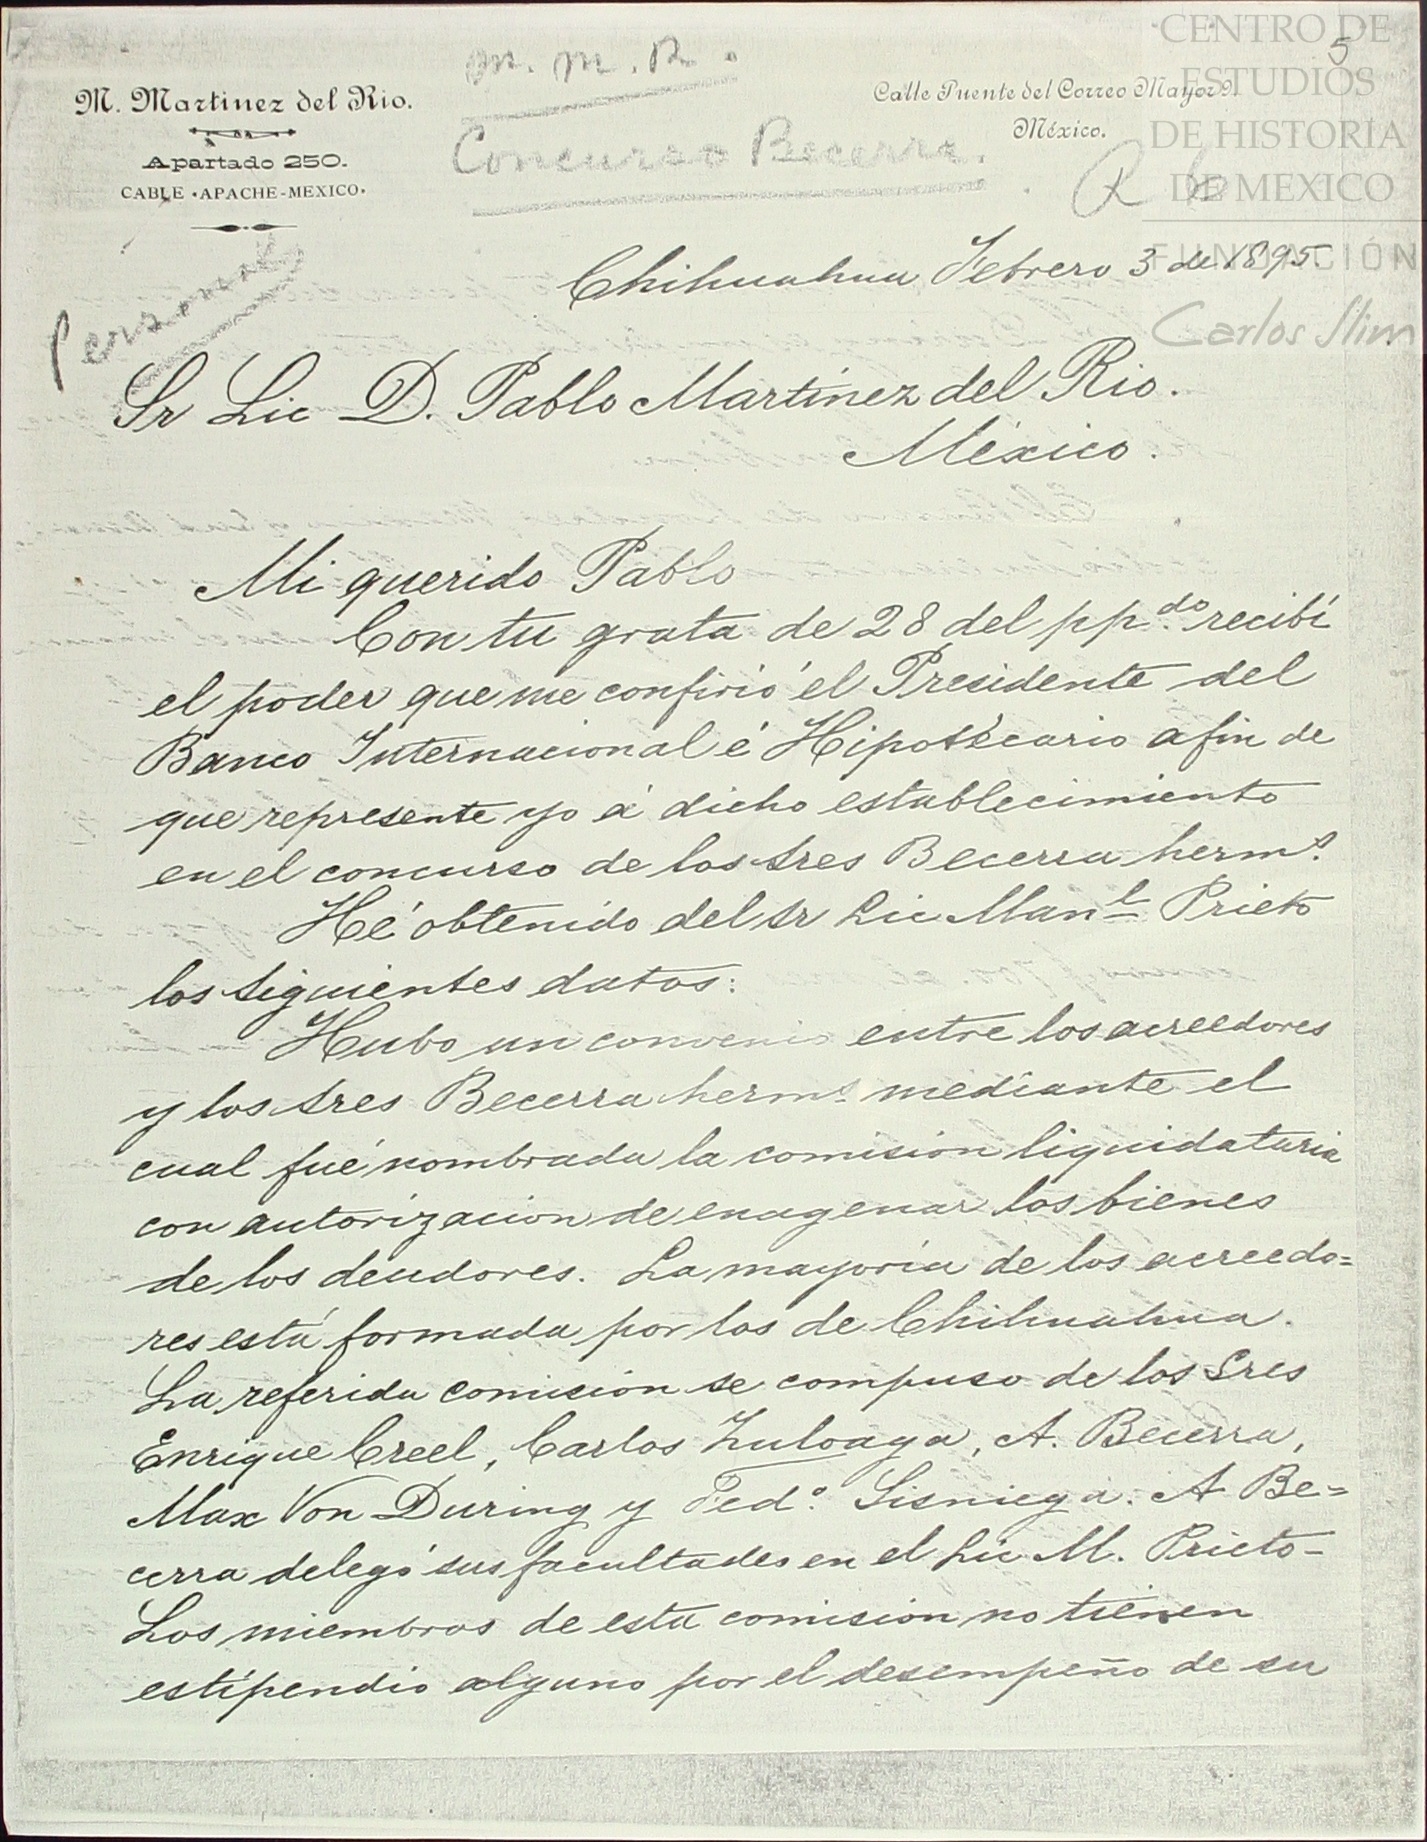 CENTRO DE
ESTUDIOS
DE HISTORIA
DE MEXICO
FUNDACIÓN
Carlos Slim
5
M. M. R.
Concurso Becerra.
M. Martinez del Rio.
Apartado 250.
CABLE "APACHE-MEXICO.
Calle Puente del Correo Mayor 9.
México.
Personal
Chihuahua Febrero 3 de 1895
Sr Lic D. Pablo Martínez del Rio.
México.
Mi querido Pablo
Con tu grata de 28 del pp.do recibí
el poder que me confirió el Presidente del
Banco Internacional é Hipotécario afin de
que represente yo á dicho establecimiento
en el concurso de los tres Becerra herms.
Hé obtenido del Sr Lic Manl Prieto
los siguientes datos:
Hubo un convenio entre los acreedores
y los tres Becerra herms. mediante el
cual fué nombrada la comisión liquidataria
con autorizacion de enagenar los bienes
de los deudores. La mayoría de los acreedo=
res está formada por los de Chihuahua.
La referida comisión se compuso de los Sres
Enrique Creel, Carlos Zuloaga, A. Becerra,
Max Von During y Fedo. Sisniega. A Be=
cerra delegó sus facultades en el Lic M. Prieto-
Los miembros de esta comisión no tienen
estípendio alguno por el desempeño de su